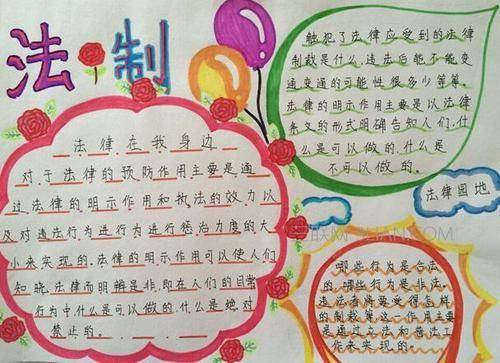 法制
法律在我身边
对于法律的预防作用主要是通
过法律的明示作用和执法的效力以
及对违法行为进行为进行惩治力度的大
小来实现的.法律的明示作用可以使人们
知晓.法律而明辨是非.即在人们的日常
行为中什么是可以做的.什么是绝对
禁止的.
触犯了法律应受到的法律
制裁是什么.违法后能不能变
通变通的可能性很多少等等.
法律的明示作用主要是以法律
条文的形式明确告知人们.什
么是可以做的.什么是
不可以做的.
法律园地
哪些行为是合法
的.哪些行为是非法.
违法者将要受得怎样
的制裁等.这一作用主要
是通过立法和普法工
作来实现的.